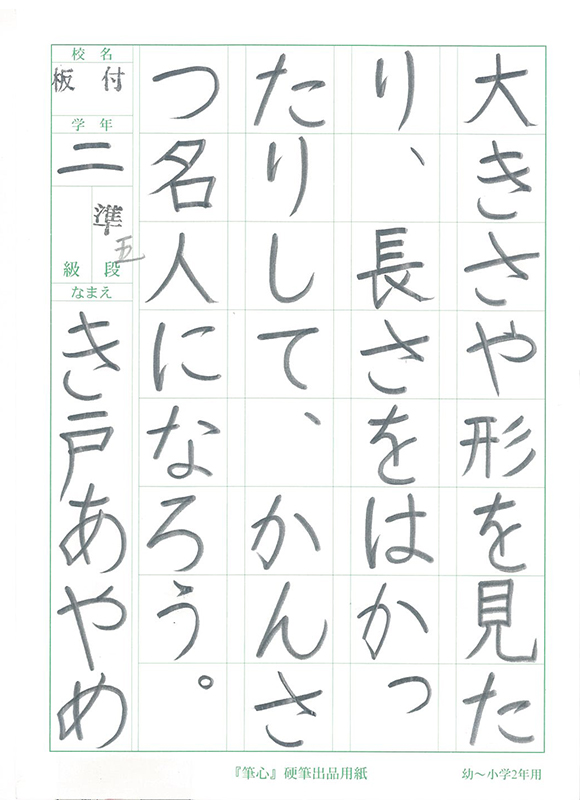 大きさや形を見た
り、長さをはかっ
たりして、かんさ
つ名人になろう。
校名
板付
学年
二
準五
級段
なまえ
き戸あやめ
『筆心』硬筆出品用紙
幼〜小学2年用